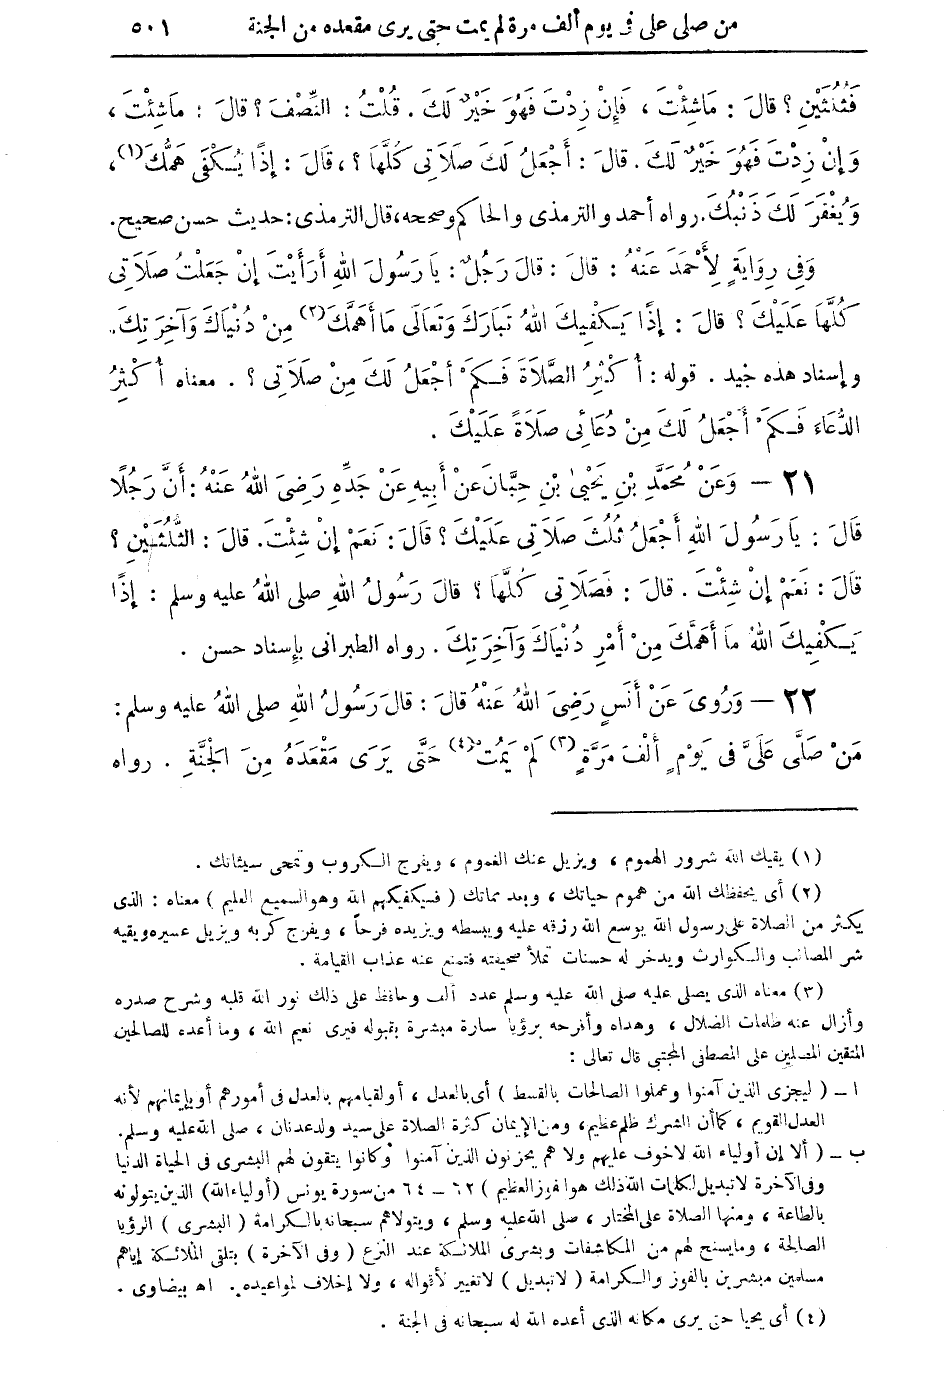 من صلى على فى يوم ألف مرة لم يمت حتى يرى مقعده من الجنة ٥٠١
فَثُلُثَيْنِ ؟ قالَ : مَاشِئْتَ ، فَإِنْ زِدْتَ فَهُوَ خَيْرٌ لَكَ . قُلْتُ : النِّصْفَ ؟ قالَ : مَاشِئْتَ ،
وَإِنْ زِدْتَ فَهُوَ خَيْرٌ لَكَ . قالَ : أَجْعَلُ لَكَ صَلَاتِى كُلَّهَا ؟ ، قَالَ : إِذًا يُكْفَى هَمُّكَ (١) ،
وَيُغْفَرَ لَكَ ذَنْبُكَ . رواه أحمد والترمذى والحاكم وصححه، قال الترمذى: حديث حسن صحيح .
وَفِى رِوَايَةٍ لِأَحْمَدَ عَنْهُ : قالَ : قالَ رَجُلٌ : يَا رَسُولَ اللهِ أَرَأَيْتَ إِنْ جَعَلْتُ صَلَاتِى
كُلَّهَا عَلَيْكَ ؟ قالَ : إِذًا يَكْفِيكَ اللهُ تَبَارَكَ وَتَعَالَى مَا أَهَمَّكَ (٢) مِنْ دُنْيَاكَ وَآخِرَتِكَ .
وإسناد هذه جيد . قوله : أُكْثِرُ الصَّلَاةَ فَكَمْ أَجْعَلُ لَكَ مِنْ صَلَاتِى ؟ . معناه أُكْثِرُ
الدُّعَاءَ فَكَمْ أَجْعَلُ لَكَ مِنْ دُعَائِى صَلَاةً عَلَيْكَ .
٢١ — وَعَنْ مُحَمَّدِ بْنِ يَحْيَى بْنِ حِبَّانَ عَنْ أَبِيهِ عَنْ جَدِّهِ رَضِىَ اللهُ عَنْهُ : أَنَّ رَجُلًا
قَالَ : يَا رَسُولَ اللهِ أَجْعَلُ ثُلُثَ صَلَاتِى عَلَيْكَ ؟ قَالَ : نَعَمْ إِنْ شِئْتَ . قالَ : الثُّلُثَيْنِ ؟
قالَ : نَعَمْ إِنْ شِئْتَ . قالَ : فَصَلَاتِى كُلَّهَا ؟ قالَ رَسُولُ اللهِ صلى اللهُ عليه وسلم : إِذًا
يَكْفِيكَ اللهُ مَا أَهَمَّكَ مِنْ أَمْرِ دُنْيَاكَ وَآخِرَتِكَ . رواه الطبرانى بإسناد حسن .
٢٢ — وَرُوِىَ عَنْ أَنَسٍ رَضِىَ اللهُ عَنْهُ قالَ : قالَ رَسُولُ اللهِ صلى اللهُ عليه وسلم :
مَنْ صَلَّى عَلَىَّ فى يَوْمٍ أَلْفَ مَرَّةٍ (٣) لَمْ يَمُتْ (٤) حَتَّى يَرَى مَقْعَدَهُ مِنَ الْجَنَّةِ . رواه
(١) يقيك الله شرور الهموم ، ويزيل عنك الغموم ، ويفرج الكروب وتمحى سيئاتك .
(٢) أى يحفظك الله من هموم حياتك ، وبعد مماتك ( فسيكفيكهم الله وهو السميع العليم ) معناه : الذى
يكثر من الصلاة على رسول الله يوسع الله رزقه عليه ويبسطه ويزيده فرحاً ، ويفرج كربه ويزيل عسيره ويقيه
شر المصائب والكوارث ويدخر له حسنات تملأ صحيفته فتمنع عنه عذاب القيامة .
(٣) معناه الذى يصلى عليه صلى الله عليه وسلم عدد ألف وحافظ على ذلك نور الله قلبه وشرح صدره
وأزال عنه ظلمات الضلال ، وهداه وأفرحه برؤيا سارة مبشرة بقبوله فيرى نعيم الله ، وما أعده للصالحين
المتقين المصلين على المصطفى المجتبى قال تعالى :
ا — ( ليجزى الذين آمنوا وعملوا الصالحات بالقسط ) أى بالعدل ، أو لقيامهم بالعدل فى أمورهم أو بإيمانهم لأنه
العدل القويم ، كما أن الشرك ظلم عظيم، ومن الإيمان كثرة الصلاة على سيد ولد عدنان ، صلى الله عليه وسلم .
ب — ( ألا إن أولياء الله لا خوف عليهم ولا هم يحزنون الذين آمنوا وكانوا يتقون لهم البشرى فى الحياة الدنيا
وفى الآخرة لا تبديل لكلمات الله ذلك هو الفوز العظيم ) ٦٢ — ٦٤ من سورة يونس (أولياء الله) الذين يتولونه
بالطاعة ، ومنها الصلاة على المختار ، صلى الله عليه وسلم ، ويتولاهم سبحانه بالكرامة ( البشرى ) الرؤيا
الصالحة ، وما يسنح لهم من المكاشفات وبشرى الملائكة عند النزع ( وفى الآخرة ) بتلقى الملائكة إياهم
مسلمين مبشرين بالفوز والكرامة ( لا تبديل ) لا تغيير لأقواله ، ولا إخلاف لمواعيده . اهـ بيضاوى .
(٤) أى يحيا حتى يرى مكانه الذى أعده الله له سبحانه فى الجنة .